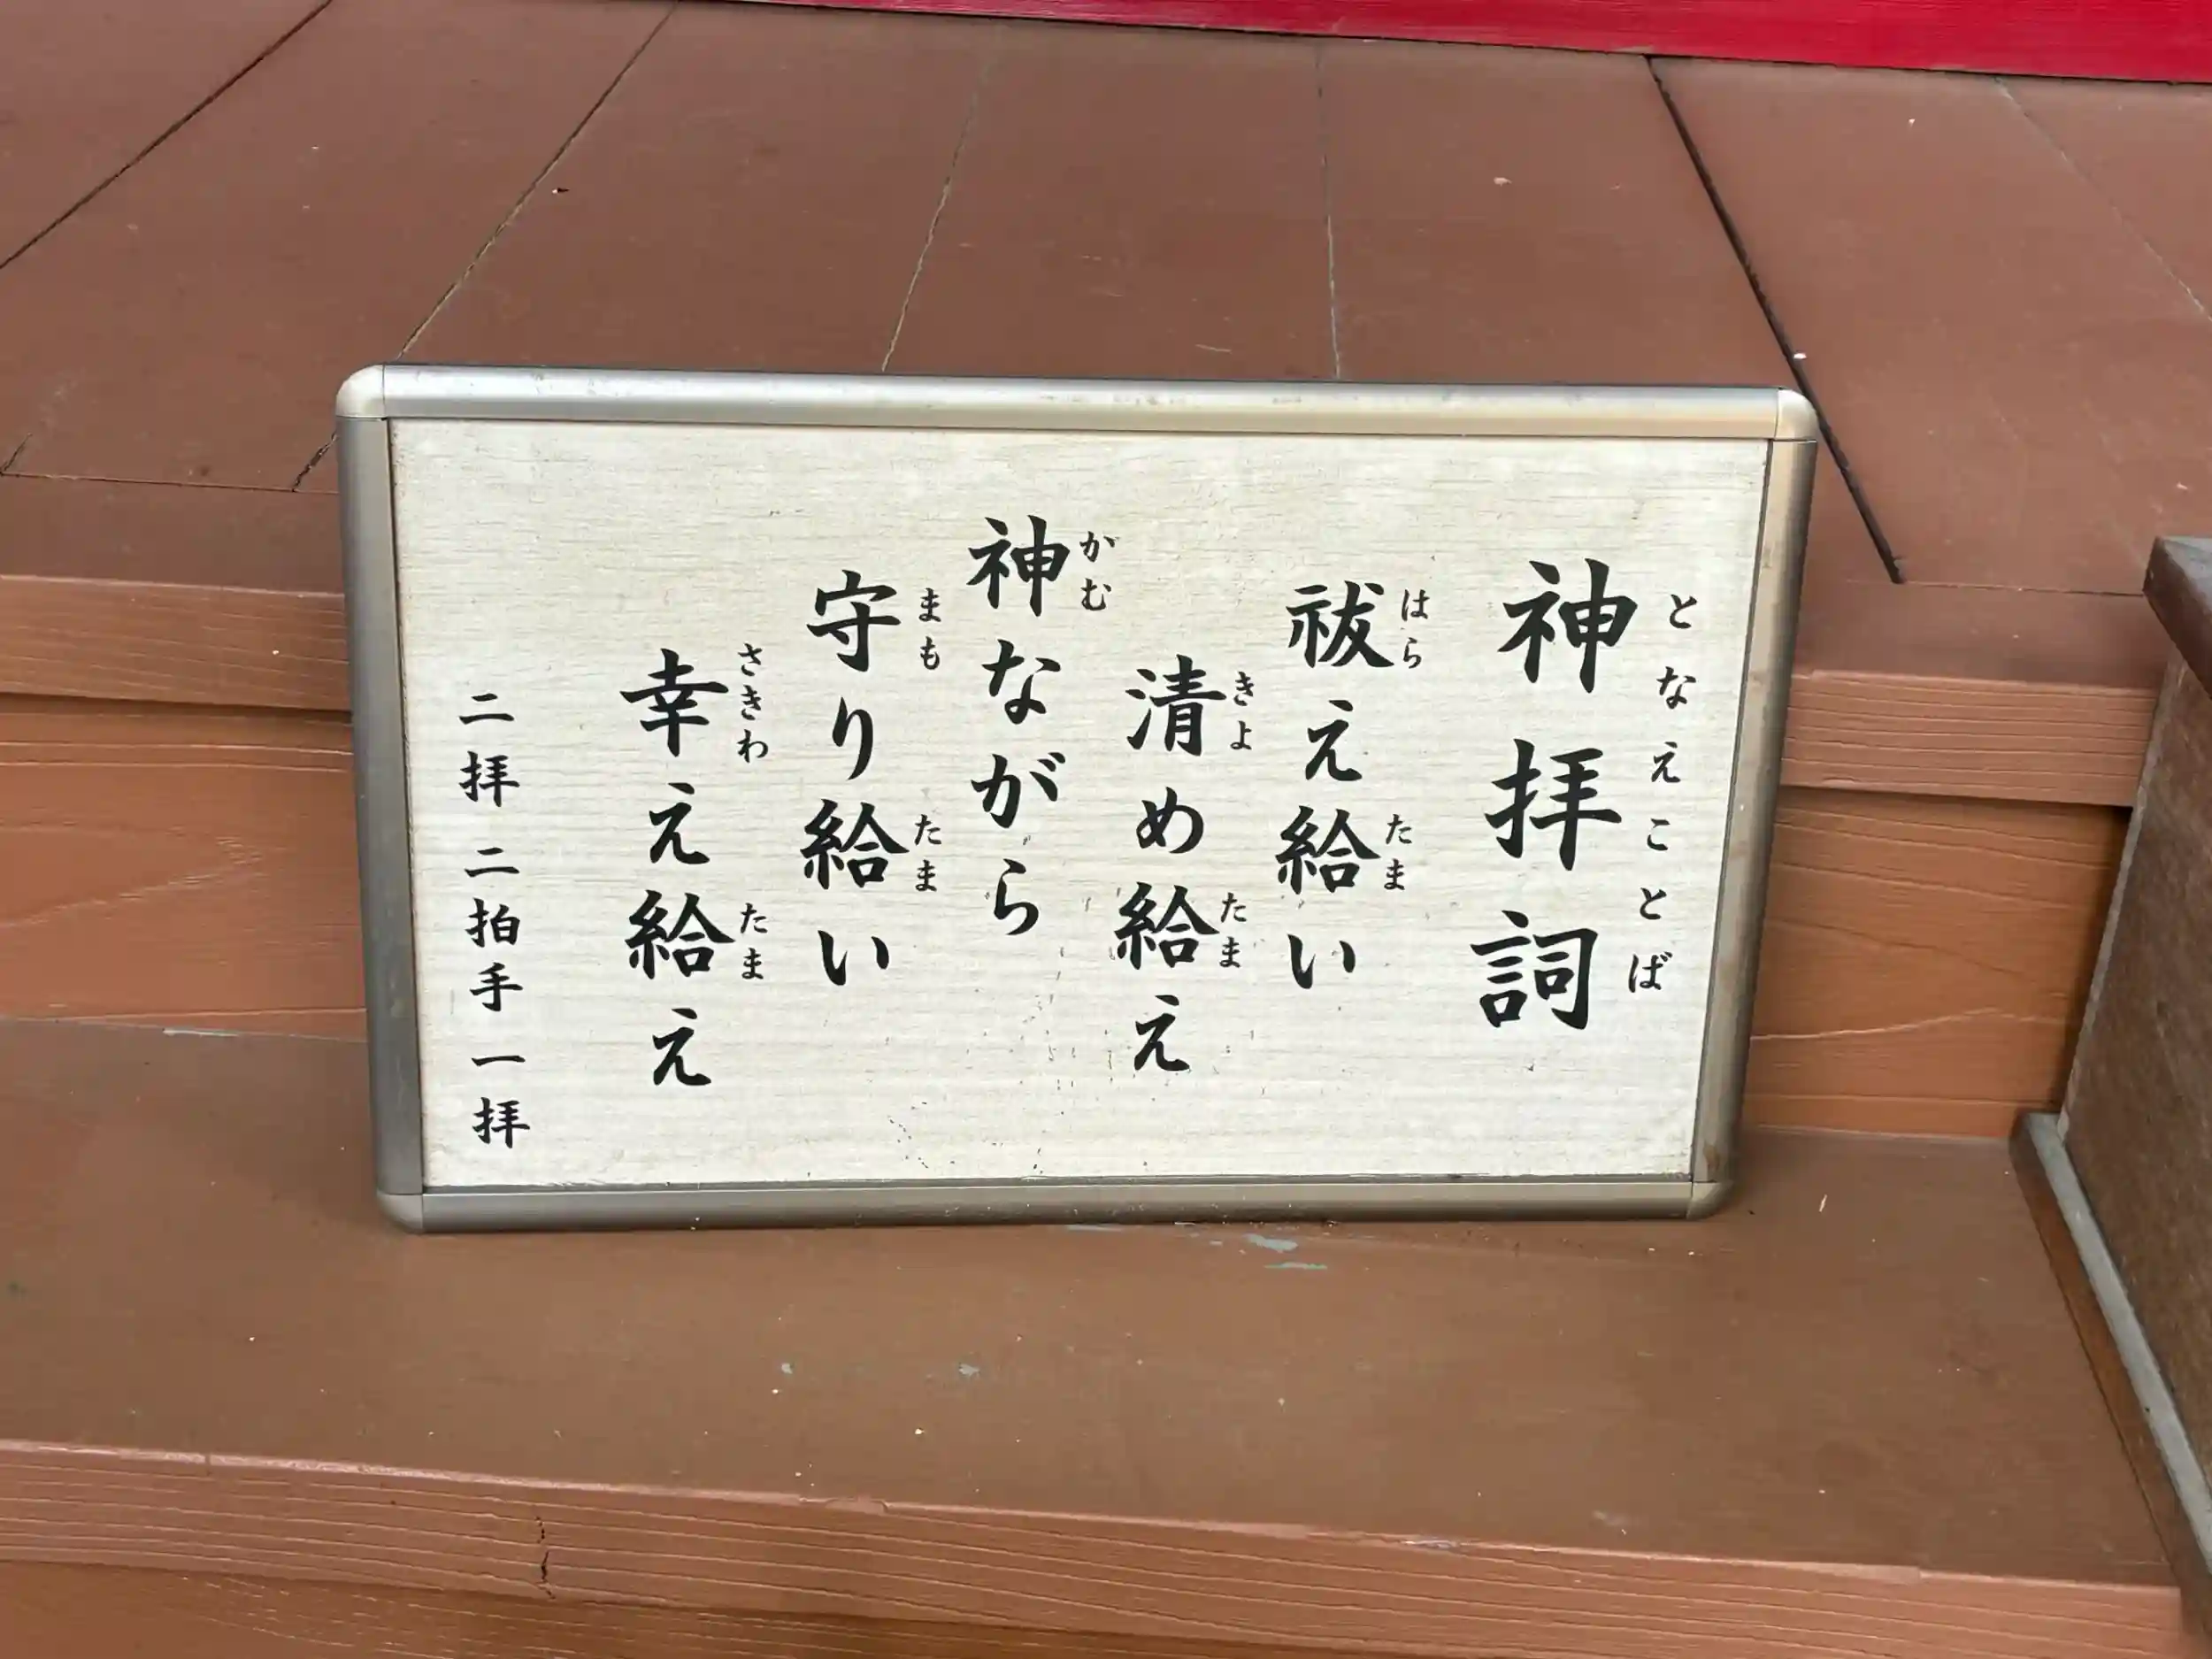 神拝詞
となえことば
祓え給い
はら たま
清め給え
きよ たま
神ながら
かむ
守り給い
まも たま
幸え給え
さきわ たま
二拝二拍手一拝